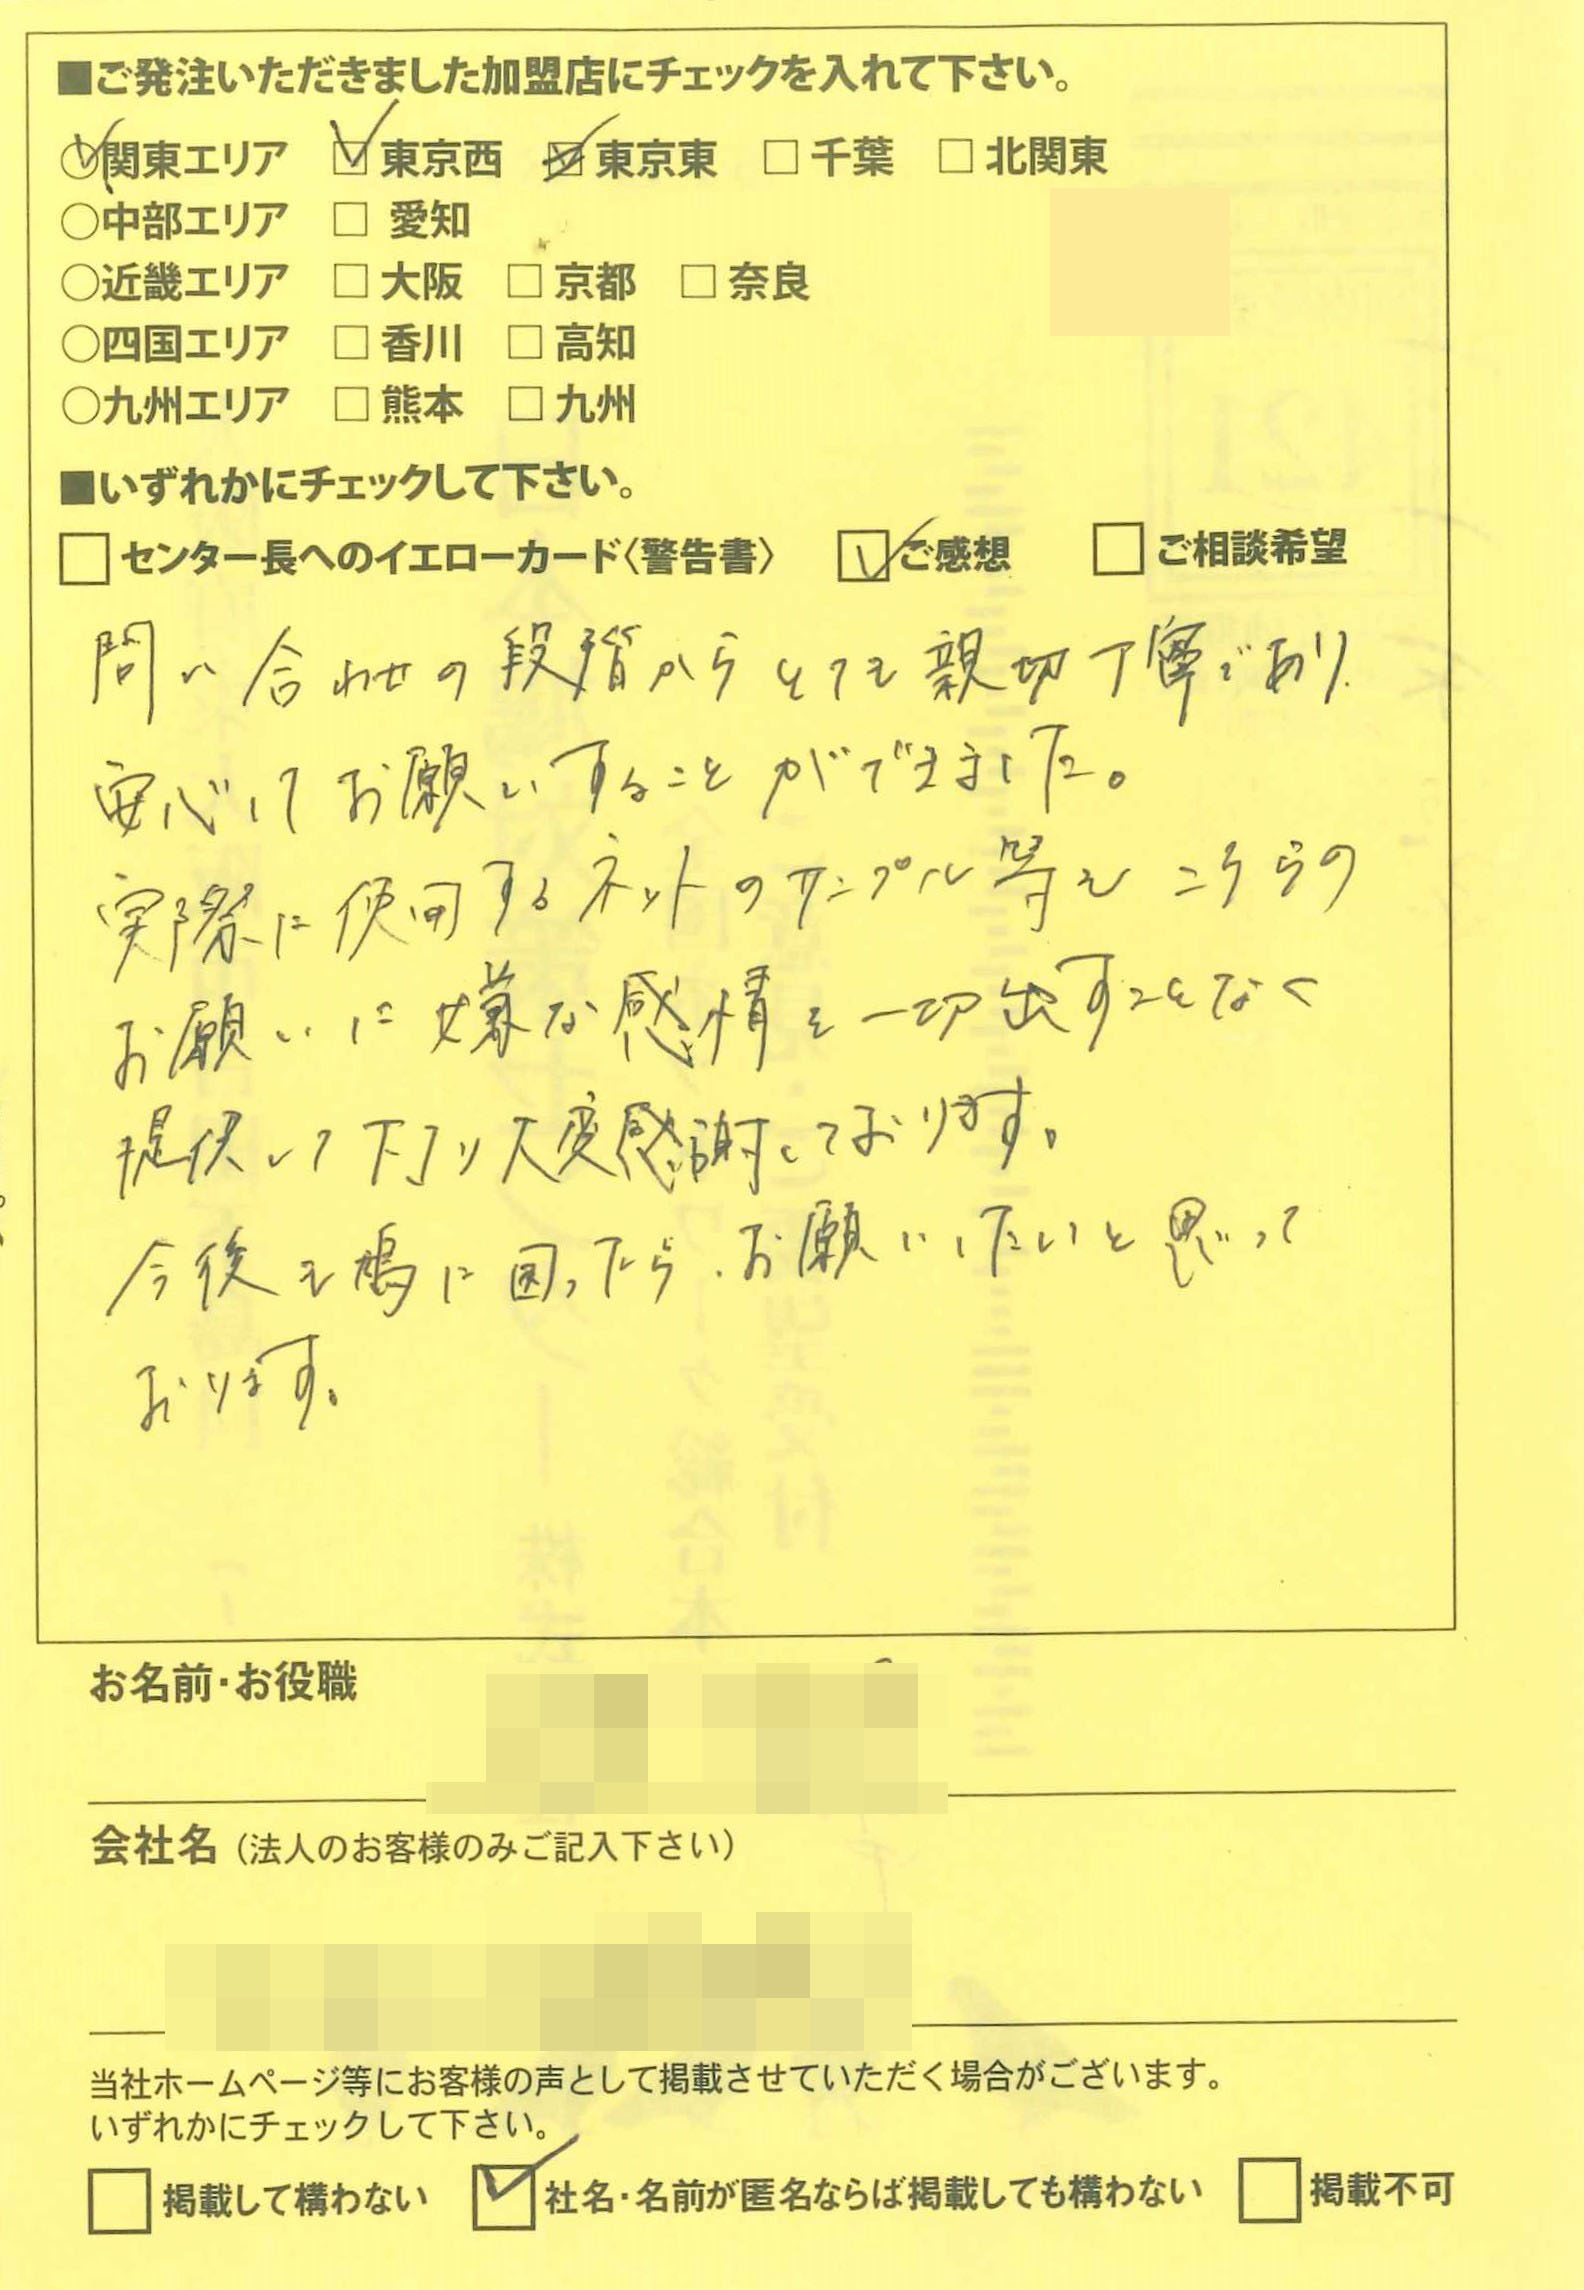 ■ご発注いただきました加盟店にチェックを入れて下さい。
○関東エリア □ 東京西 □ 東京東 □ 千葉 □ 北関東
○中部エリア □ 愛知
○近畿エリア □ 大阪 □ 京都 □ 奈良
○四国エリア □ 香川 □ 高知
○九州エリア □ 熊本 □ 九州
■いずれかにチェックして下さい。
□ センター長へのイエローカード〈警告書〉 □ ご感想 □ ご相談希望
問い合わせの段階からとても親切丁寧であり
安心してお願いすることができました。
実際に使用するネットのサンプル等もこちらの
お願いに嫌な感情も一切出すことなく
提供して下さり大変感謝しております。
今後も鳩に困ったら、お願いいたしたいと思って
おります。
お名前・お役職
会社名（法人のお客様のみご記入下さい）
当社ホームページ等にお客様の声として掲載させていただく場合がございます。
いずれかにチェックして下さい。
□ 掲載して構わない □ 社名・名前が匿名ならば掲載しても構わない □ 掲載不可